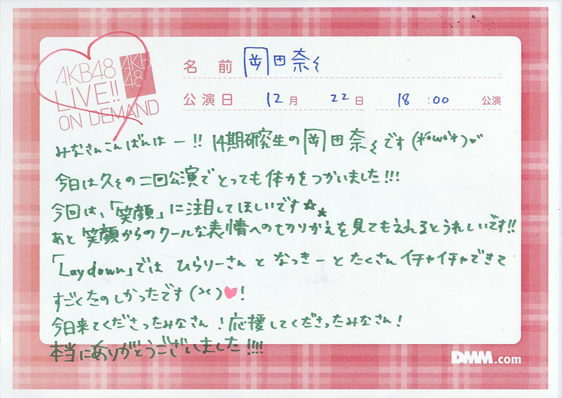 AKB48
LIVE!!
ON DEMAND
AKB
48
名 前 岡田奈々
公演日 12月 22日 18:00 公演
みなさんこんばんはー!! 14期研究生の岡田奈々です(*'ω'*)♡
今日は久々の二回公演でとっても体力をつかいました!!!
今回は、「笑顔」に注目してほしいです☆★
あと笑顔からのクールな表情への切りかえを見てもらえるとうれしいです!!
「Laydown」では ひらりーさんと なっきーと たくさん イチャイチャできて
すごくたのしかったです(><)♥!
今日来てくださったみなさん!応援してくださったみなさん!
本当にありがとうございました!!!!
DMM.com